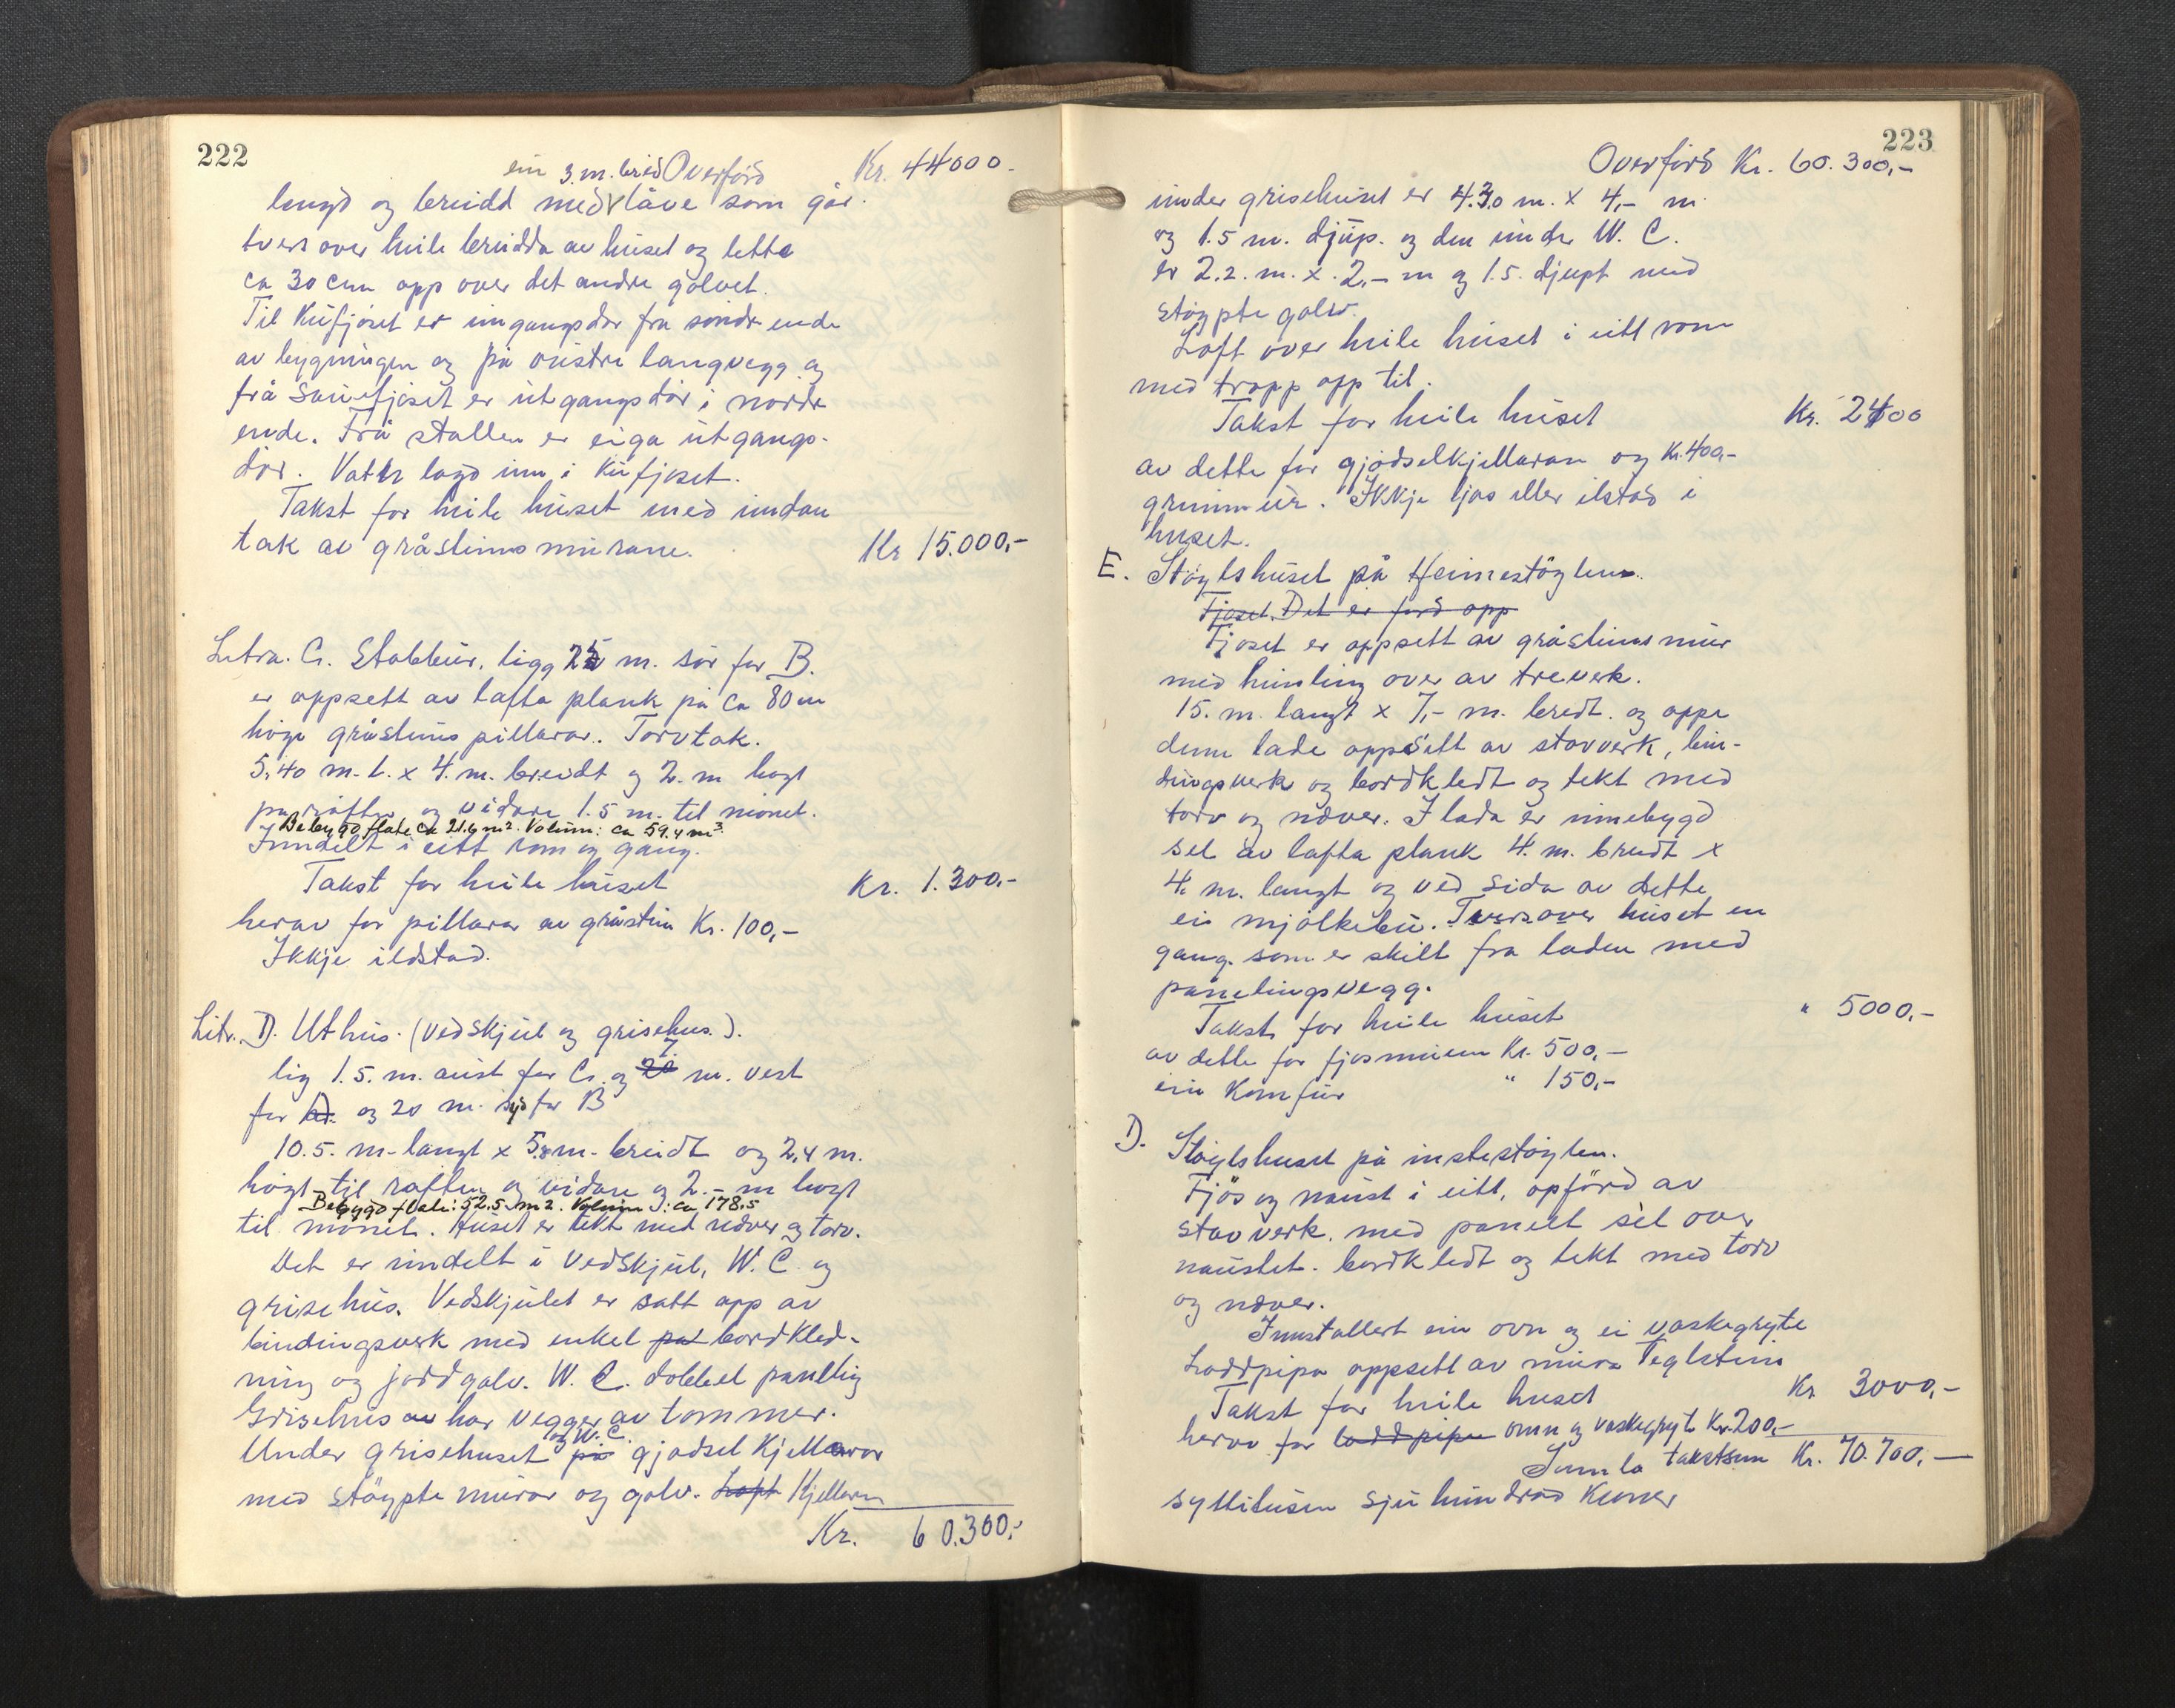 222
ein 3. m. breid Overförd Kr. 44000.-
lengd og breidd med v låve som går
tvers over heile breidda av huset og lette
ca 30 cm opp over det andre golvet.
Til Kufjøset er inngangsdør fra søndre ende
av bygningen og på austre langvegg og
frå Sauefjøset er utgangsdør i nordre
ende. Frå stallen er eiga utgangs-
dør. Vatn lagd inn i Kufjøset.
Takst for heile huset med undan
tak av gråsteinsmurane. Kr 15.000,-
Litra. C. Stabbur. ligg 25 m. sør for B.
er oppsett av lafta plank på ca 80 cm
høge gråsteinspillarar. Torvtak.
5,40 m. l. x 4. m. breidt og 2. m høgt
på raften og vidare 1.5 m. til mønet.
Bebygd flate ca 21.6 m². Volum: ca 59.4 m³.
Inndelt i eitt rom og gang.
Takst for heile huset Kr. 1.300.-
herav for pillarar av gråstein Kr. 100,-
Ikkje ildstad.
Litr. D. Uthus. (Vedskjul og grisehus.).
lig 1.5. m. aust for C. og 7 m. vest
for og 20 m. syd for B
10.5. m. langt x 5.0 m. breidt og 2,4 m.
høgt til raften og vidare og 2.- m høgt
Bebygd flate: 52.5 m2. Volum: ca 178,5
til mønet. Huset er tekt med never og torv.
Det er inndelt i Vedskjul, W. C. og
grisehus. Vedskjulet er satt opp av
bindingsverk med enkel bordkled-
ning og jordgolv. W. C. dobbel panelling
Grisehus har vegger av tømmer.
og W. C.
Under grisehuset på gjødsel Kjellarar
med støypte murar og golv. Loft Kjellaren
Kr. 60.300,-
223
Overförd Kr. 60.300,-
under grisehuset er 4.30 m. x 4,- m
og 1.5 m. djup. og den under W. C.
er 2.2. m. x. 2,- m og 1.5. djupt med
støypte golv.
Loft over heile huset i eitt rom
med tropp opp til.
Takst for heile huset Kr. 2400
av dette for gjødselkjellaran og Kr. 400,-
grunnmur. Ikkje ljos eller ilstad i
huset.
E. Støylshuset på Heimestøylen.
Fjøset. Det er ført opp
Fjøset er oppsett av gråsteinsmur
med himling over av treverk.
15. m. langt x 7,- m. bredt. og oppe
denne lade oppsett av stavverk, bin-
dingsverk og bordkledt og tekt med
torv og never. I lada er innebygd
sel av lafta plank 4. m. breidt x
4. m. langt og ved sida av dette
ei mjølkebu. Tvers over huset en
gang. som er skilt fra laden med
panelingsvegg.
Takst for heile huset " 5000,-
av dette for fjøsmuren Kr. 500,-
ein Komfur " 150,-
D. Støylshuset på instestøylen.
Fjös og naust i eitt, opförd av
stavverk. med panelt sel over
naustet. bordkledt og tekt med torv
og never.
Innstallert ein ovn og ei vaskegryte
Loddpipa oppsett av mura Teglstein
Takst for heile huset Kr 3000,-
herav for loddpipe omn og vaskegryte Kr. 200,-
Sum la takstsum Kr. 70.700,-
syttitusen sju hundrad Kroner